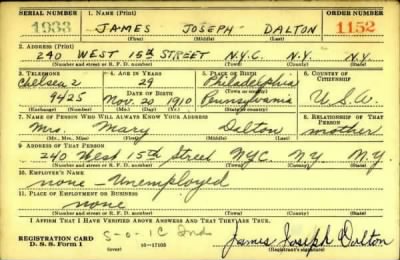 SERIAL NUMBER 1. NAME (Print) ORDER NUMBER
1933 JAMES JOSEPH DALTON 1152
(First) (Middle) (Last)
2. ADDRESS (Print)
240 WEST 15th STREET N.Y.C. N.Y. N.Y.
(Number and street or R. F. D. number) (Town) (County) (State)
3. TELEPHONE 4. AGE IN YEARS 5. PLACE OF BIRTH 6. COUNTRY OF CITIZENSHIP
Chelsea 2 29 Philadelphia
DATE OF BIRTH (Town or county)
4425 Nov. 20 1910 Pennsylvania U.S.A.
(Exchange) (Number) (Mo.) (Day) (Yr.) (State or country)
7. NAME OF PERSON WHO WILL ALWAYS KNOW YOUR ADDRESS 8. RELATIONSHIP OF THAT PERSON
Mrs. Mary Dalton mother
(Mr., Mrs., Miss) (First) (Middle) (Last)
9. ADDRESS OF THAT PERSON
240 West 15th Street NYC. N.Y. N.Y.
(Number and street or R. F. D. number) (Town) (County) (State)
10. EMPLOYER'S NAME
none Unemployed
11. PLACE OF EMPLOYMENT OR BUSINESS
none
(Number and street or R. F. D. number) (Town) (County) (State)
I AFFIRM THAT I HAVE VERIFIED ABOVE ANSWERS AND THAT THEY ARE TRUE.
REGISTRATION CARD
D. S. S. Form 1 (over) 16—17105 James Joseph Dalton
(Registrant's signature)